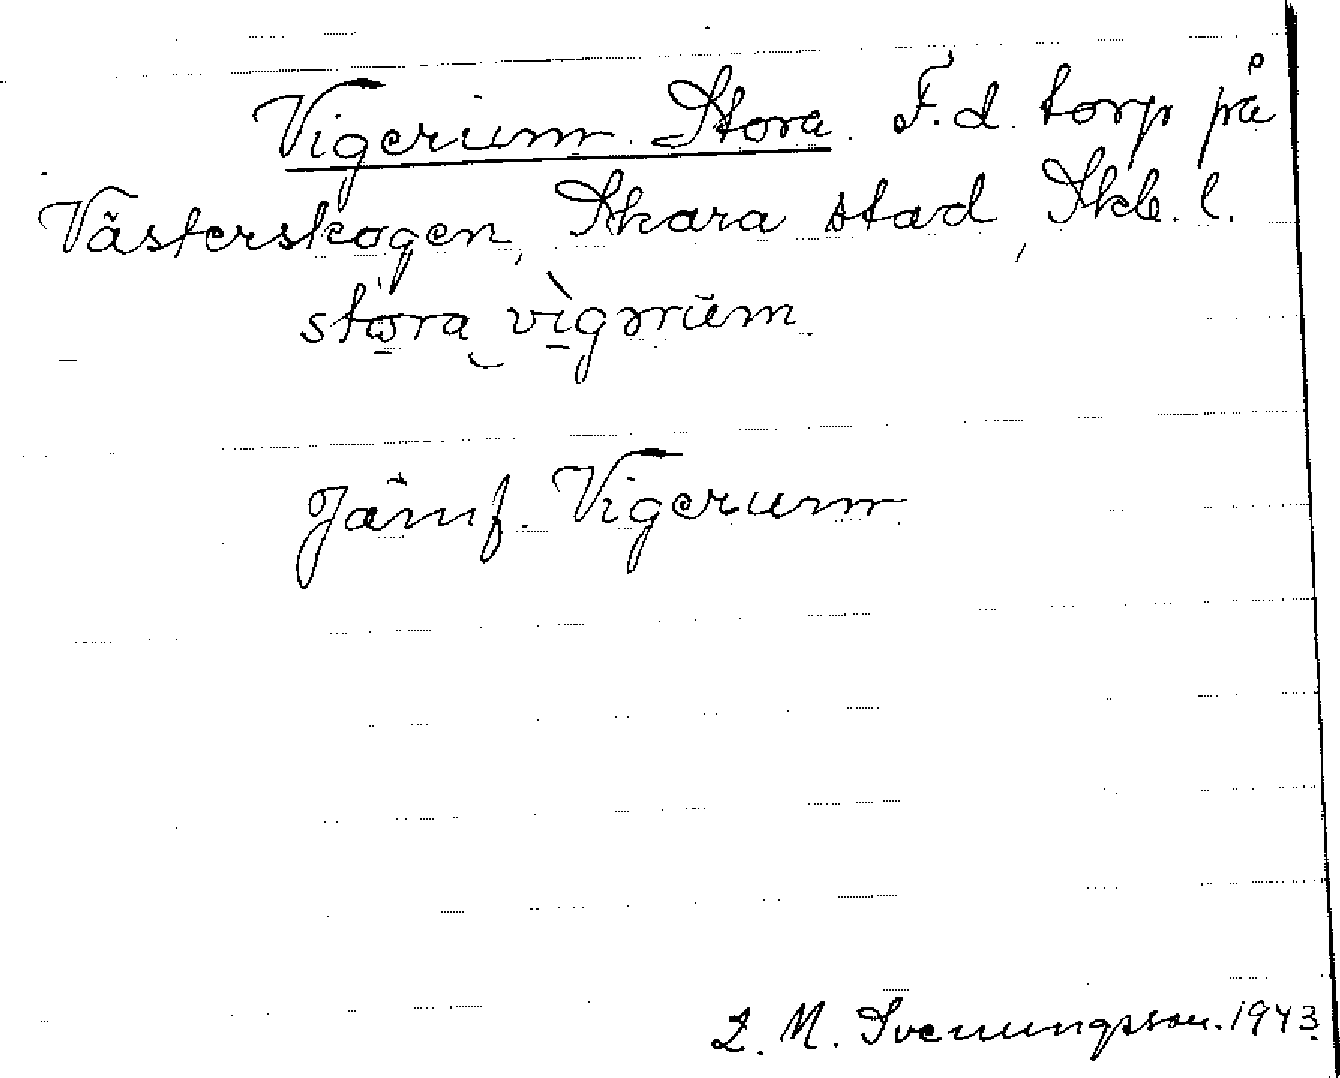 Vigerum Stora. F.d. torp på
Västerskogen, Skara stad, Skb. l.
stora vìgərum
Jämf. Vigerum
L. M. Svenungsson. 1943.